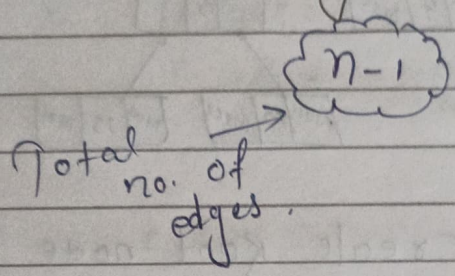 n-1
Total
no. of
edges.